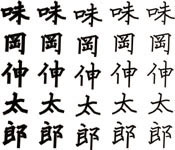 味味味味味
岡岡岡岡岡
伸伸伸伸伸
太太太太太
郎郎郎郎郎